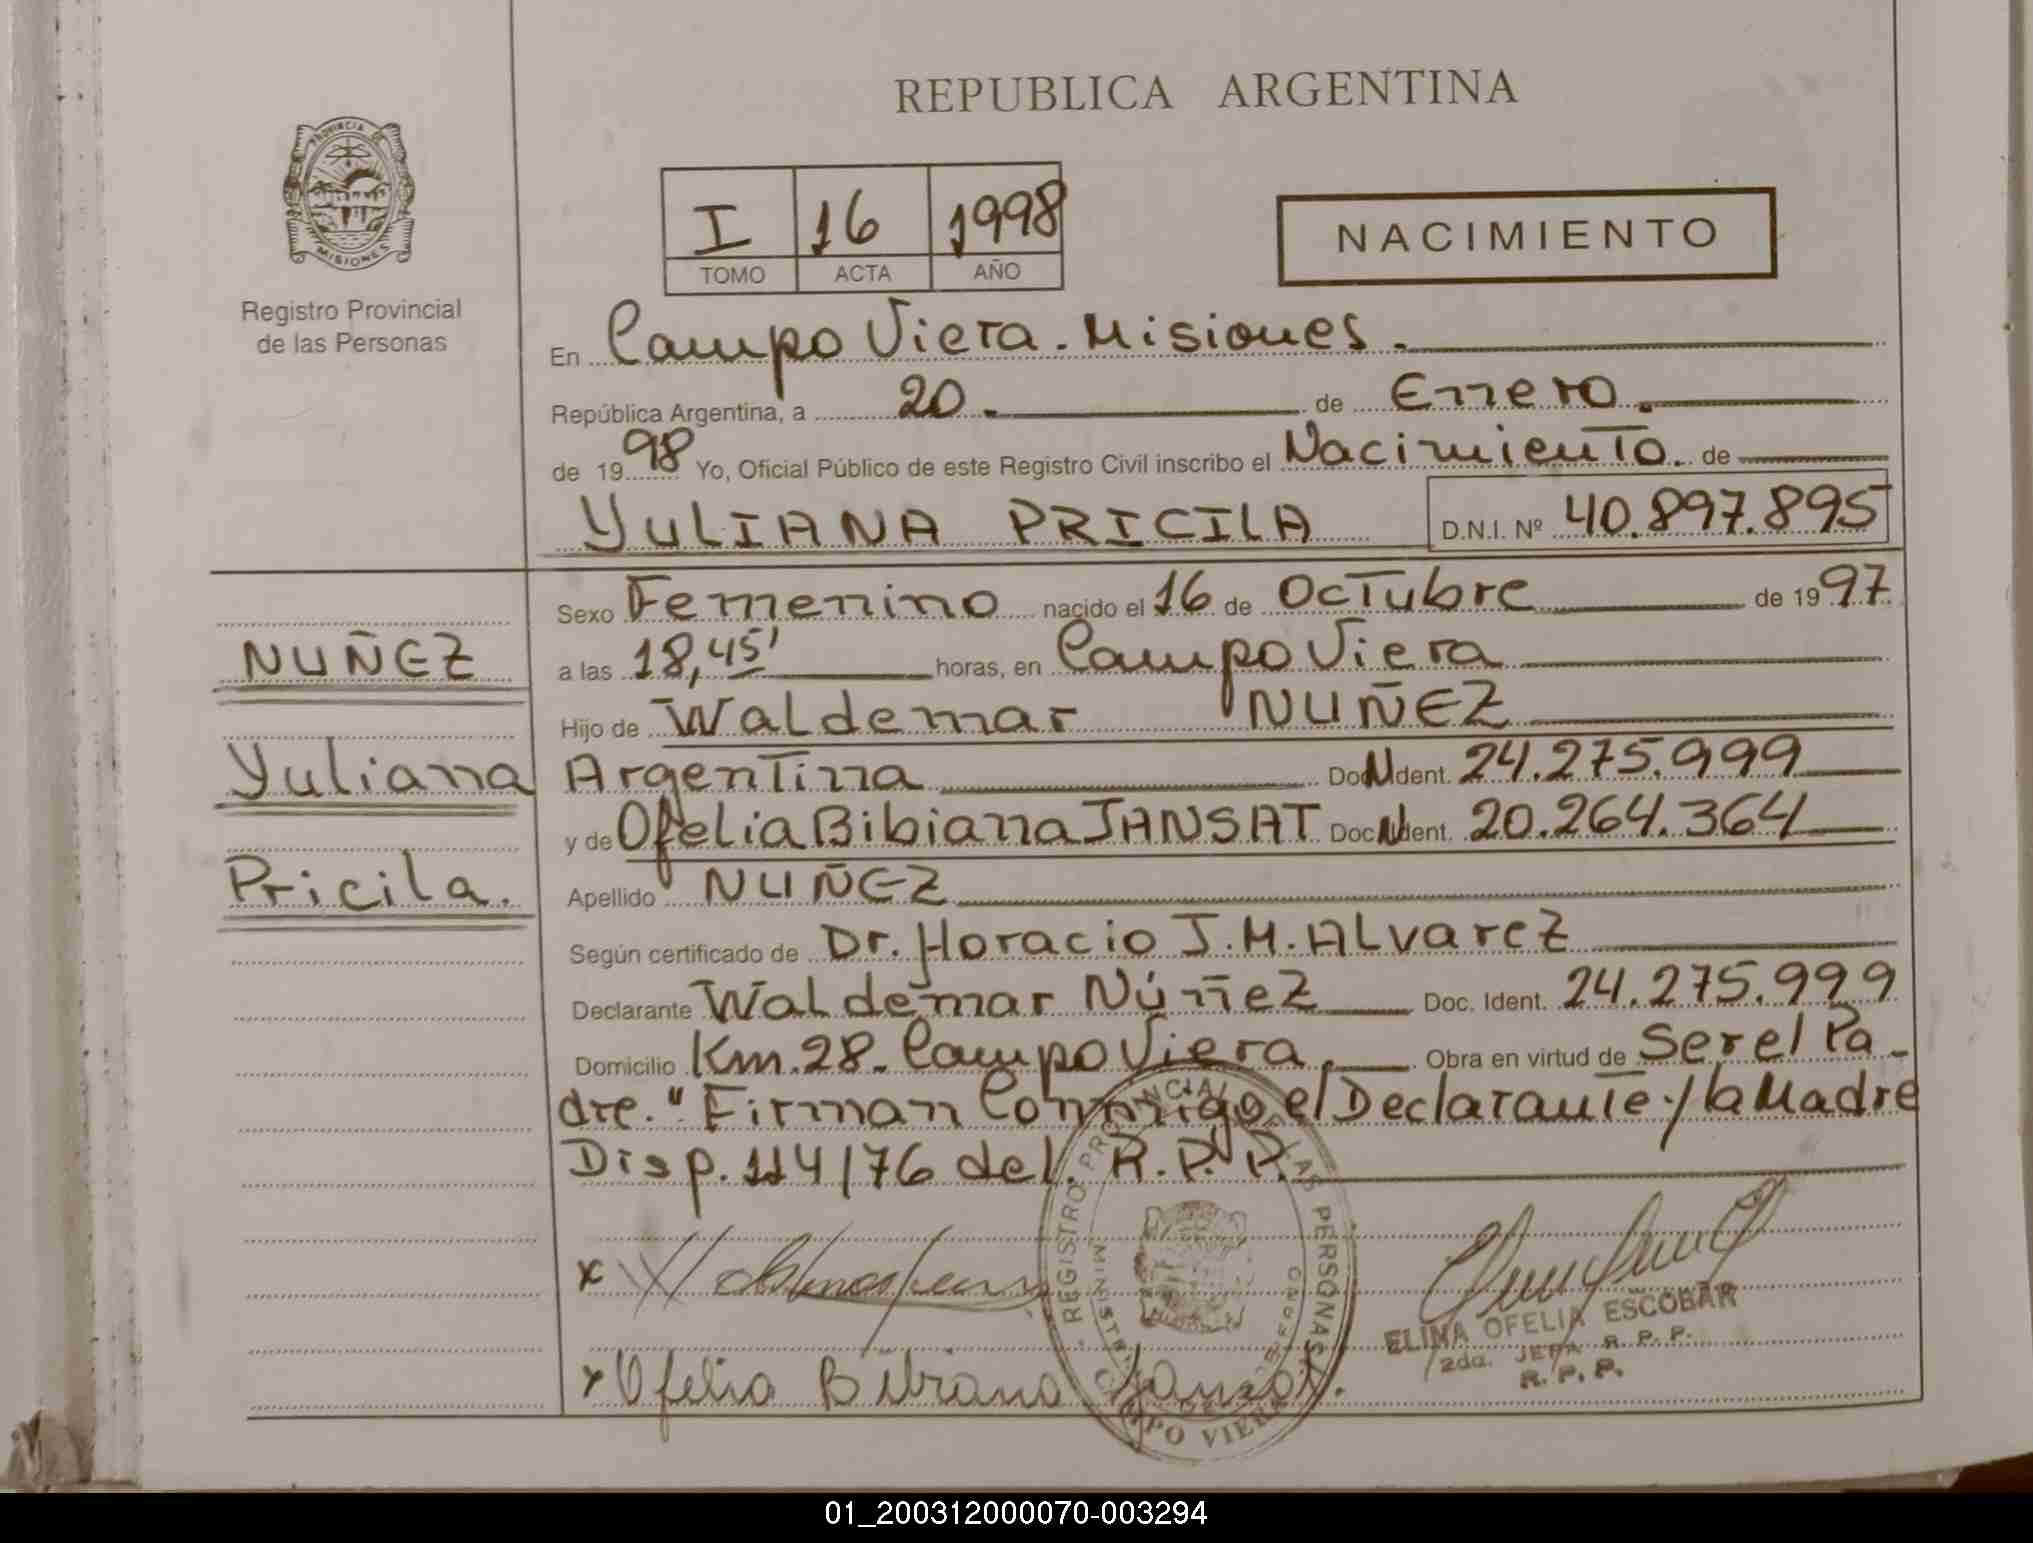 REPUBLICA ARGENTINA
PROVINCIA DE
MISIONES
Registro Provincial
de las Personas
I 16 1998
TOMO ACTA AÑO
NACIMIENTO
En Campo Viera. Misiones.
República Argentina, a 20. de Enero.
de 1998 Yo, Oficial Público de este Registro Civil inscribo el Nacimiento. de
YULIANA PRICILA D.N.I. Nº 40.897.895
NUÑEZ
Yuliana
Pricila.
Sexo Femenino nacido el 16 de Octubre de 1997
a las 18,45' horas, en Campo Viera
Hijo de Waldemar NUÑEZ
Argentina Doc. Ident. 24.275.999
y de Ofelia Bibiana JANSAT Doc. Ident. 20.264.364
Apellido NUÑEZ
Según certificado de Dr. Horacio J.M. Alvarez
Declarante Waldemar Núñez Doc. Ident. 24.275.999
Domicilio Km. 28. Campo Viera. Obra en virtud de Ser el Pa-
dre." Firman Conmigo el Declarante y la Madre
Disp. 114/76 del. R.P.P.
REGISTRO PROVINCIAL DE LAS PERSONAS
CAMPO VIERA
x
x Ofelia Bibiana Jansat.
ELINA OFELIA ESCOBAR
2da. JEFA R.P.P.
R.P.P.
01_200312000070-003294